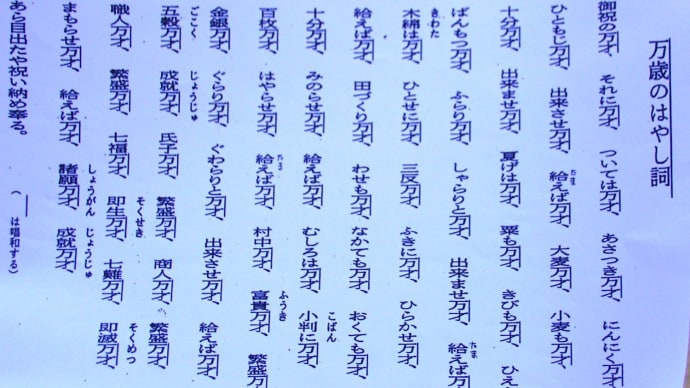 万歳のはやし詞
御祝の万才、それに万才、ついては万才、あさつき万才、にんにく万才
ひともじ万才、出来させ万才、給えば万才、大麦万才、小麦も万才、
十分万才、出来ませ万才、夏げは万才、粟も万才、きびも万才、ひえ
ばんもつ万才、ふらり万才、しゃらりと万才、出来ませ万才、給えば万才
木綿は万才、ひとせに万才、三反万才、ふきに万才、ひらかせ万才、
給えば万才、田づくり万才、わせも万才、なかても万才、おくても万才、
十分万才、みのらせ万才、給えば万才、むしろは万才、小判に万才、
百枚万才、はやらせ万才、給えば万才、村中万才、富貴万才、繁盛
金銀万才、ぐらり万才、ぐわらりと万才、出来させ万才、給えば万才、
五穀万才、成就万才、氏子万才、繁盛万才、商人万才、繁盛万才、
職人万才、繁盛万才、七福万才、即生万才、七難万才、即滅万才、
まもらせ万才、給えば万才、諸願万才、成就万才、
あら目出たや祝い納め奉る。
（　は唱和する）